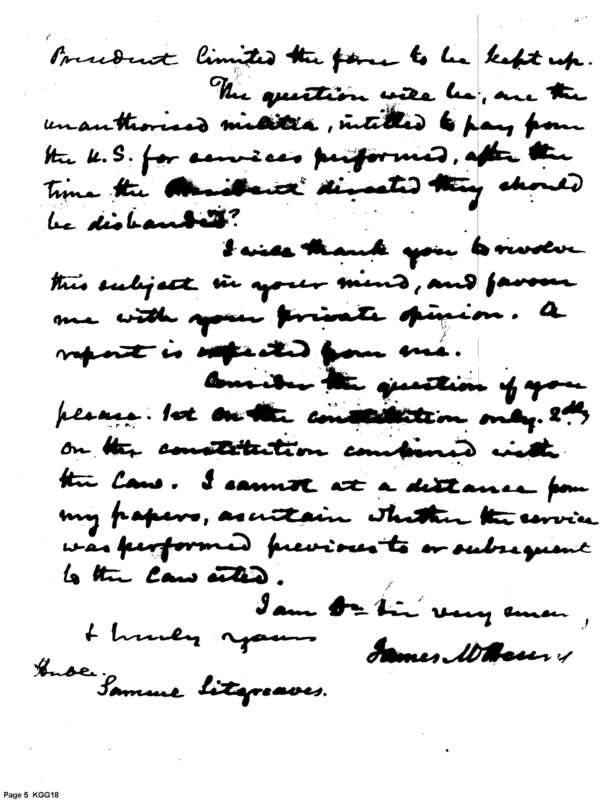 President limited the force to be kept up.
The question will be, are the
unauthorised militia, intitled to pay from
the U.S. for services performed, after the
time the President directed they should
be disbanded?
I will thank you to revolve
this subject in your mind, and favour
me with your private opinion. A
report is expected from me.
Consider the question if you
please. 1st on the constitution only. 2dly
on the constitution combined with
the Law. I cannot at a distance from
my papers, ascertain whether the service
was performed previous to or subsequent
to the Law cited.
I am Dr Sir very
& truly yours
James McHenry
Honble.
Samuel Sitgreaves.
Page 5 KGG18